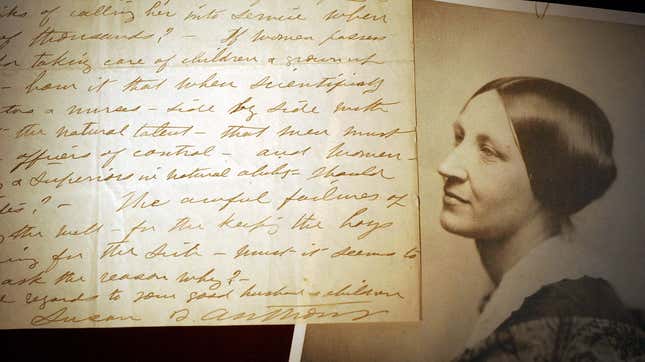 ks of calling her into service when
of thousands? - If women possess
for taking care of children & grown up
- how it that when scientifically
tors & nurses - side by side with
- the natural talent - that men must
officers of control - and women -
& superiors in natural ability - should
? - The awful failures of
the well - for the keep'g the boys
ing for the sick - must it seems to
ask the reason why? -
regards to your good husband & children
Susan B. Anthony